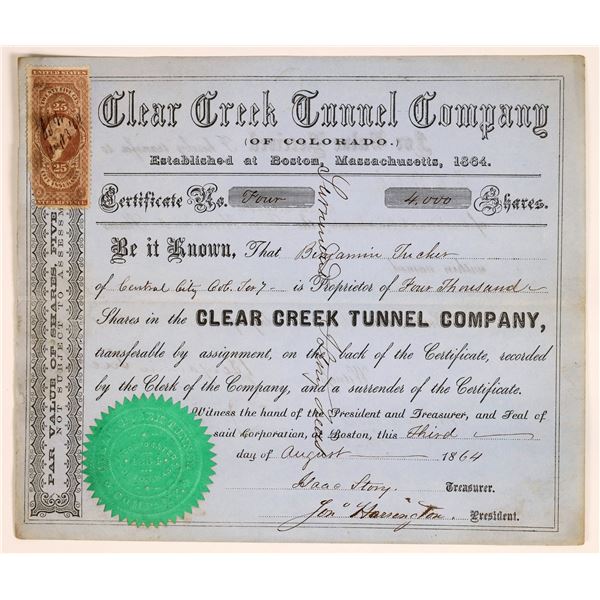 UNITED STATES
25 25
Clear Creek Tunnel Company
(OF COLORADO.)
Established at Boston, Massachusetts, 1864.
Certificate No. Four 4,000 Shares.
Be it Known, That Benjamin Tucker
of Central City Col. Ter'y is Proprietor of Four Thousand
Shares in the CLEAR CREEK TUNNEL COMPANY,
transferable by assignment, on the back of the Certificate, recorded
by the Clerk of the Company, and a surrender of the Certificate.
Witness the hand of the President and Treasurer, and Seal of
said Corporation, at Boston, this Third
day of August 1864
Isaac Story Treasurer.
Jon° Harrington. President.
PAR VALUE OF SHARES, FIVE
NOT SUBJECT TO ASSESSM
Surrendered